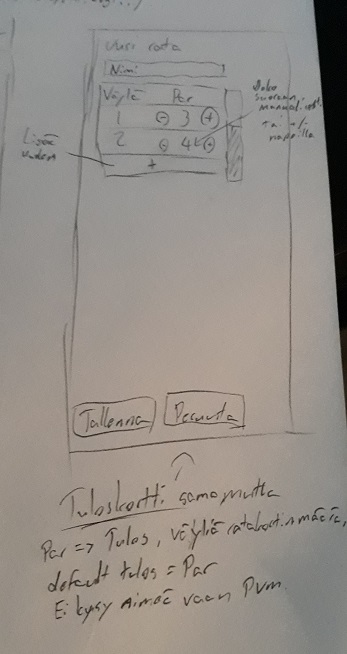 Uusi rata
Nimi
Väylä Par
1 - 3 +
2 - 4 +
+
Lisää
Joko
suoraan
manuaalisesti
tai +/-
napeilla
Tallenna Peruuta
Tuloskortti sama mutta
Par => Tulos, väyliä ratakortin määrä,
default tulos = Par
Ei kysy nimeä vaan Pvm.